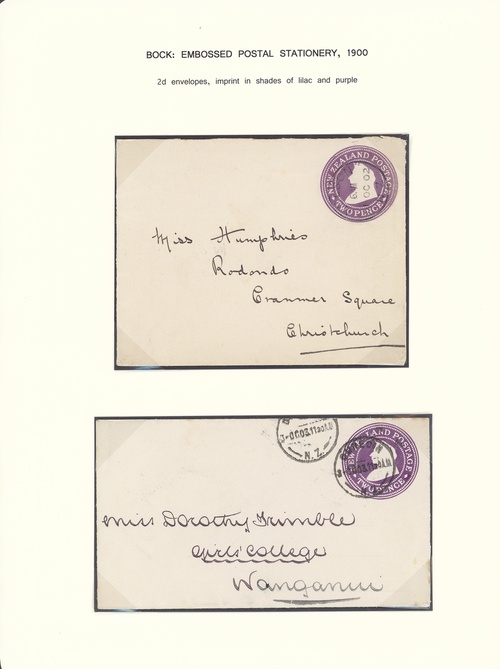 BOCK: EMBOSSED POSTAL STATIONERY, 1900
2d envelopes, imprint in shades of lilac and purple
NEW ZEALAND POSTAGE
TWO PENCE
OC 02
Miss Humphries
Rodondo
Cranmer Square
Christchurch
3-OC03.1130AM
N.Z.
NEW ZEALAND POSTAGE
TWO PENCE
DUNEDIN
Miss Dorothy Trimble
Girls' College
Wanganui